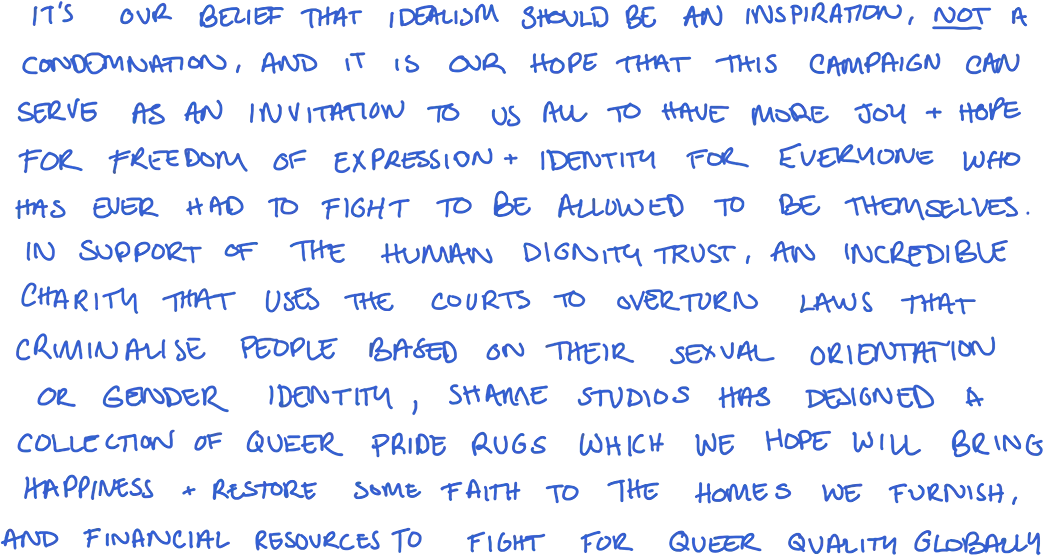 IT'S OUR BELIEF THAT IDEALISM SHOULD BE AN INSPIRATION, NOT A
CONDEMNATION, AND IT IS OUR HOPE THAT THIS CAMPAIGN CAN
SERVE AS AN INVITATION TO US ALL TO HAVE MORE JOY + HOPE
FOR FREEDOM OF EXPRESSION + IDENTITY FOR EVERYONE WHO
HAS EVER HAD TO FIGHT TO BE ALLOWED TO BE THEMSELVES.
IN SUPPORT OF THE HUMAN DIGNITY TRUST, AN INCREDIBLE
CHARITY THAT USES THE COURTS TO OVERTURN LAWS THAT
CRIMINALISE PEOPLE BASED ON THEIR SEXUAL ORIENTATION
OR GENDER IDENTITY, SHAME STUDIOS HAS DESIGNED A
COLLECTION OF QUEER PRIDE RUGS WHICH WE HOPE WILL BRING
HAPPINESS + RESTORE SOME FAITH TO THE HOMES WE FURNISH,
AND FINANCIAL RESOURCES TO FIGHT FOR QUEER QUALITY GLOBALLY